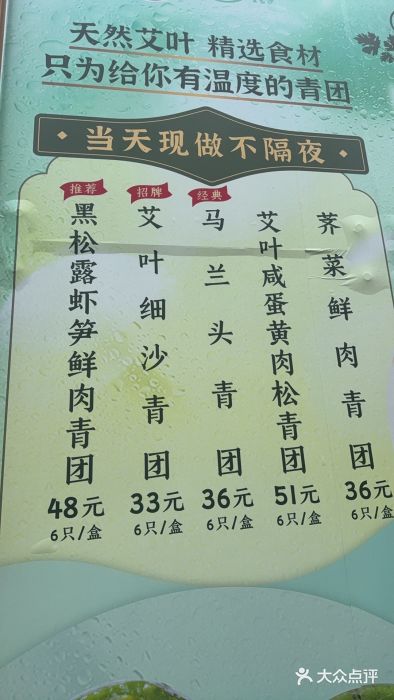 天然艾叶 精选食材
只为给你有温度的青团
当天现做不隔夜
推荐
黑松露虾笋鲜肉青团
48元
6只/盒
招牌
艾叶细沙青团
33元
6只/盒
经典
马兰头青团
36元
6只/盒
艾叶咸蛋黄肉松青团
51元
6只/盒
荠菜鲜肉青团
36元
6只/盒
大众点评